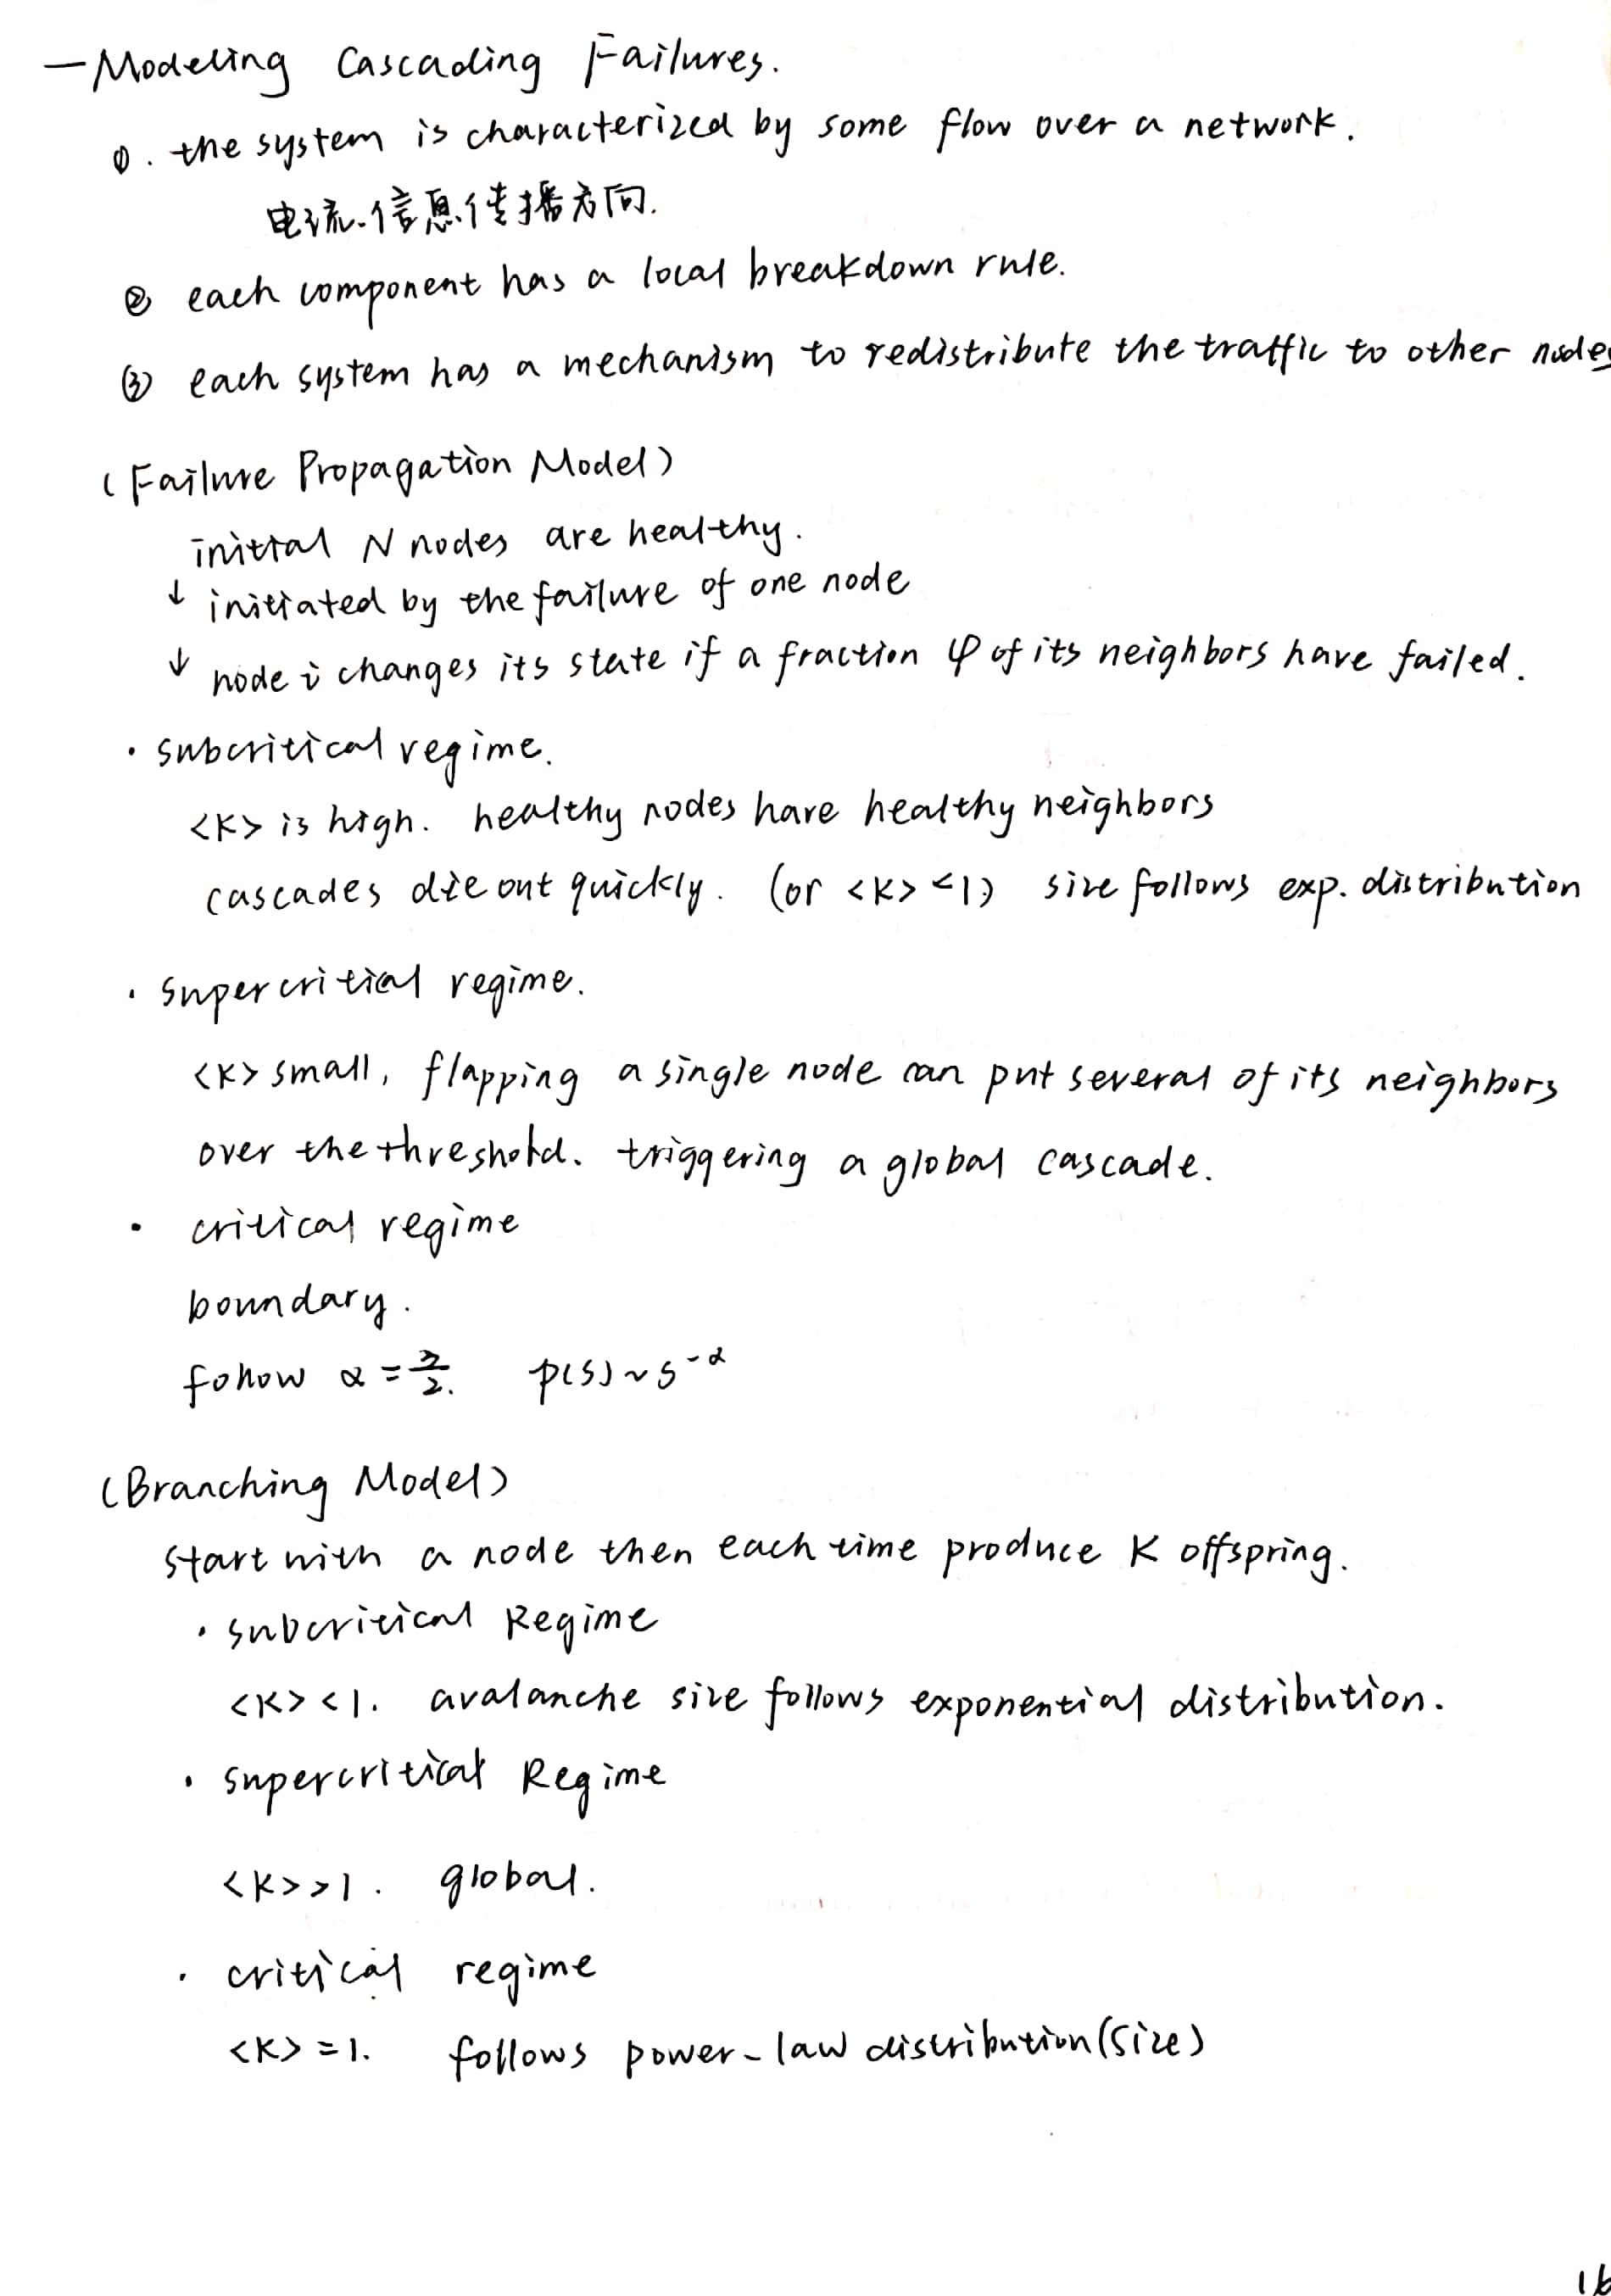 — Modeling Cascading Failures.
①. the system is characterized by some flow over a network.
电流.信息传播方向.
② each component has a local breakdown rule.
③ each system has a mechanism to redistribute the traffic to other nodes
(Failure Propagation Model)
initial N nodes are healthy.
↓ initiated by the failure of one node
↓ node i changes its state if a fraction φ of its neighbors have failed.
· subcritical regime.
<K> is high. healthy nodes have healthy neighbors
cascades die out quickly. (or <K> <1) size follows exp. distribution
· supercritical regime.
<K> small, flapping a single node can put several of its neighbors
over the threshold. triggering a global cascade.
· critical regime
boundary.
follow α = 3/2. p(s) ~ s^-α
(Branching Model)
Start with a node then each time produce K offspring.
· subcritical Regime
<K> < 1. avalanche size follows exponential distribution.
· supercritical Regime
<K> > 1. global.
· critical regime
<K> = 1. follows power-law distribution (size)
16